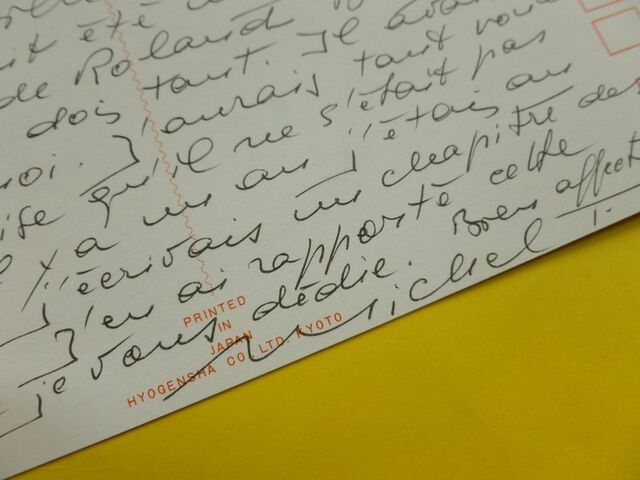 été
de Roland
dois tant. Il avait
moi. J'aurais tant voulu
qu'il ne s'était pas
y a un an j'étais au
J'écrivais un chapitre des
J'en ai rapporté cette
je vous dédie. Bien affect
Michel T.
PRINTED
IN
JAPAN
HYOGENSHA CO. LTD. KYOTO